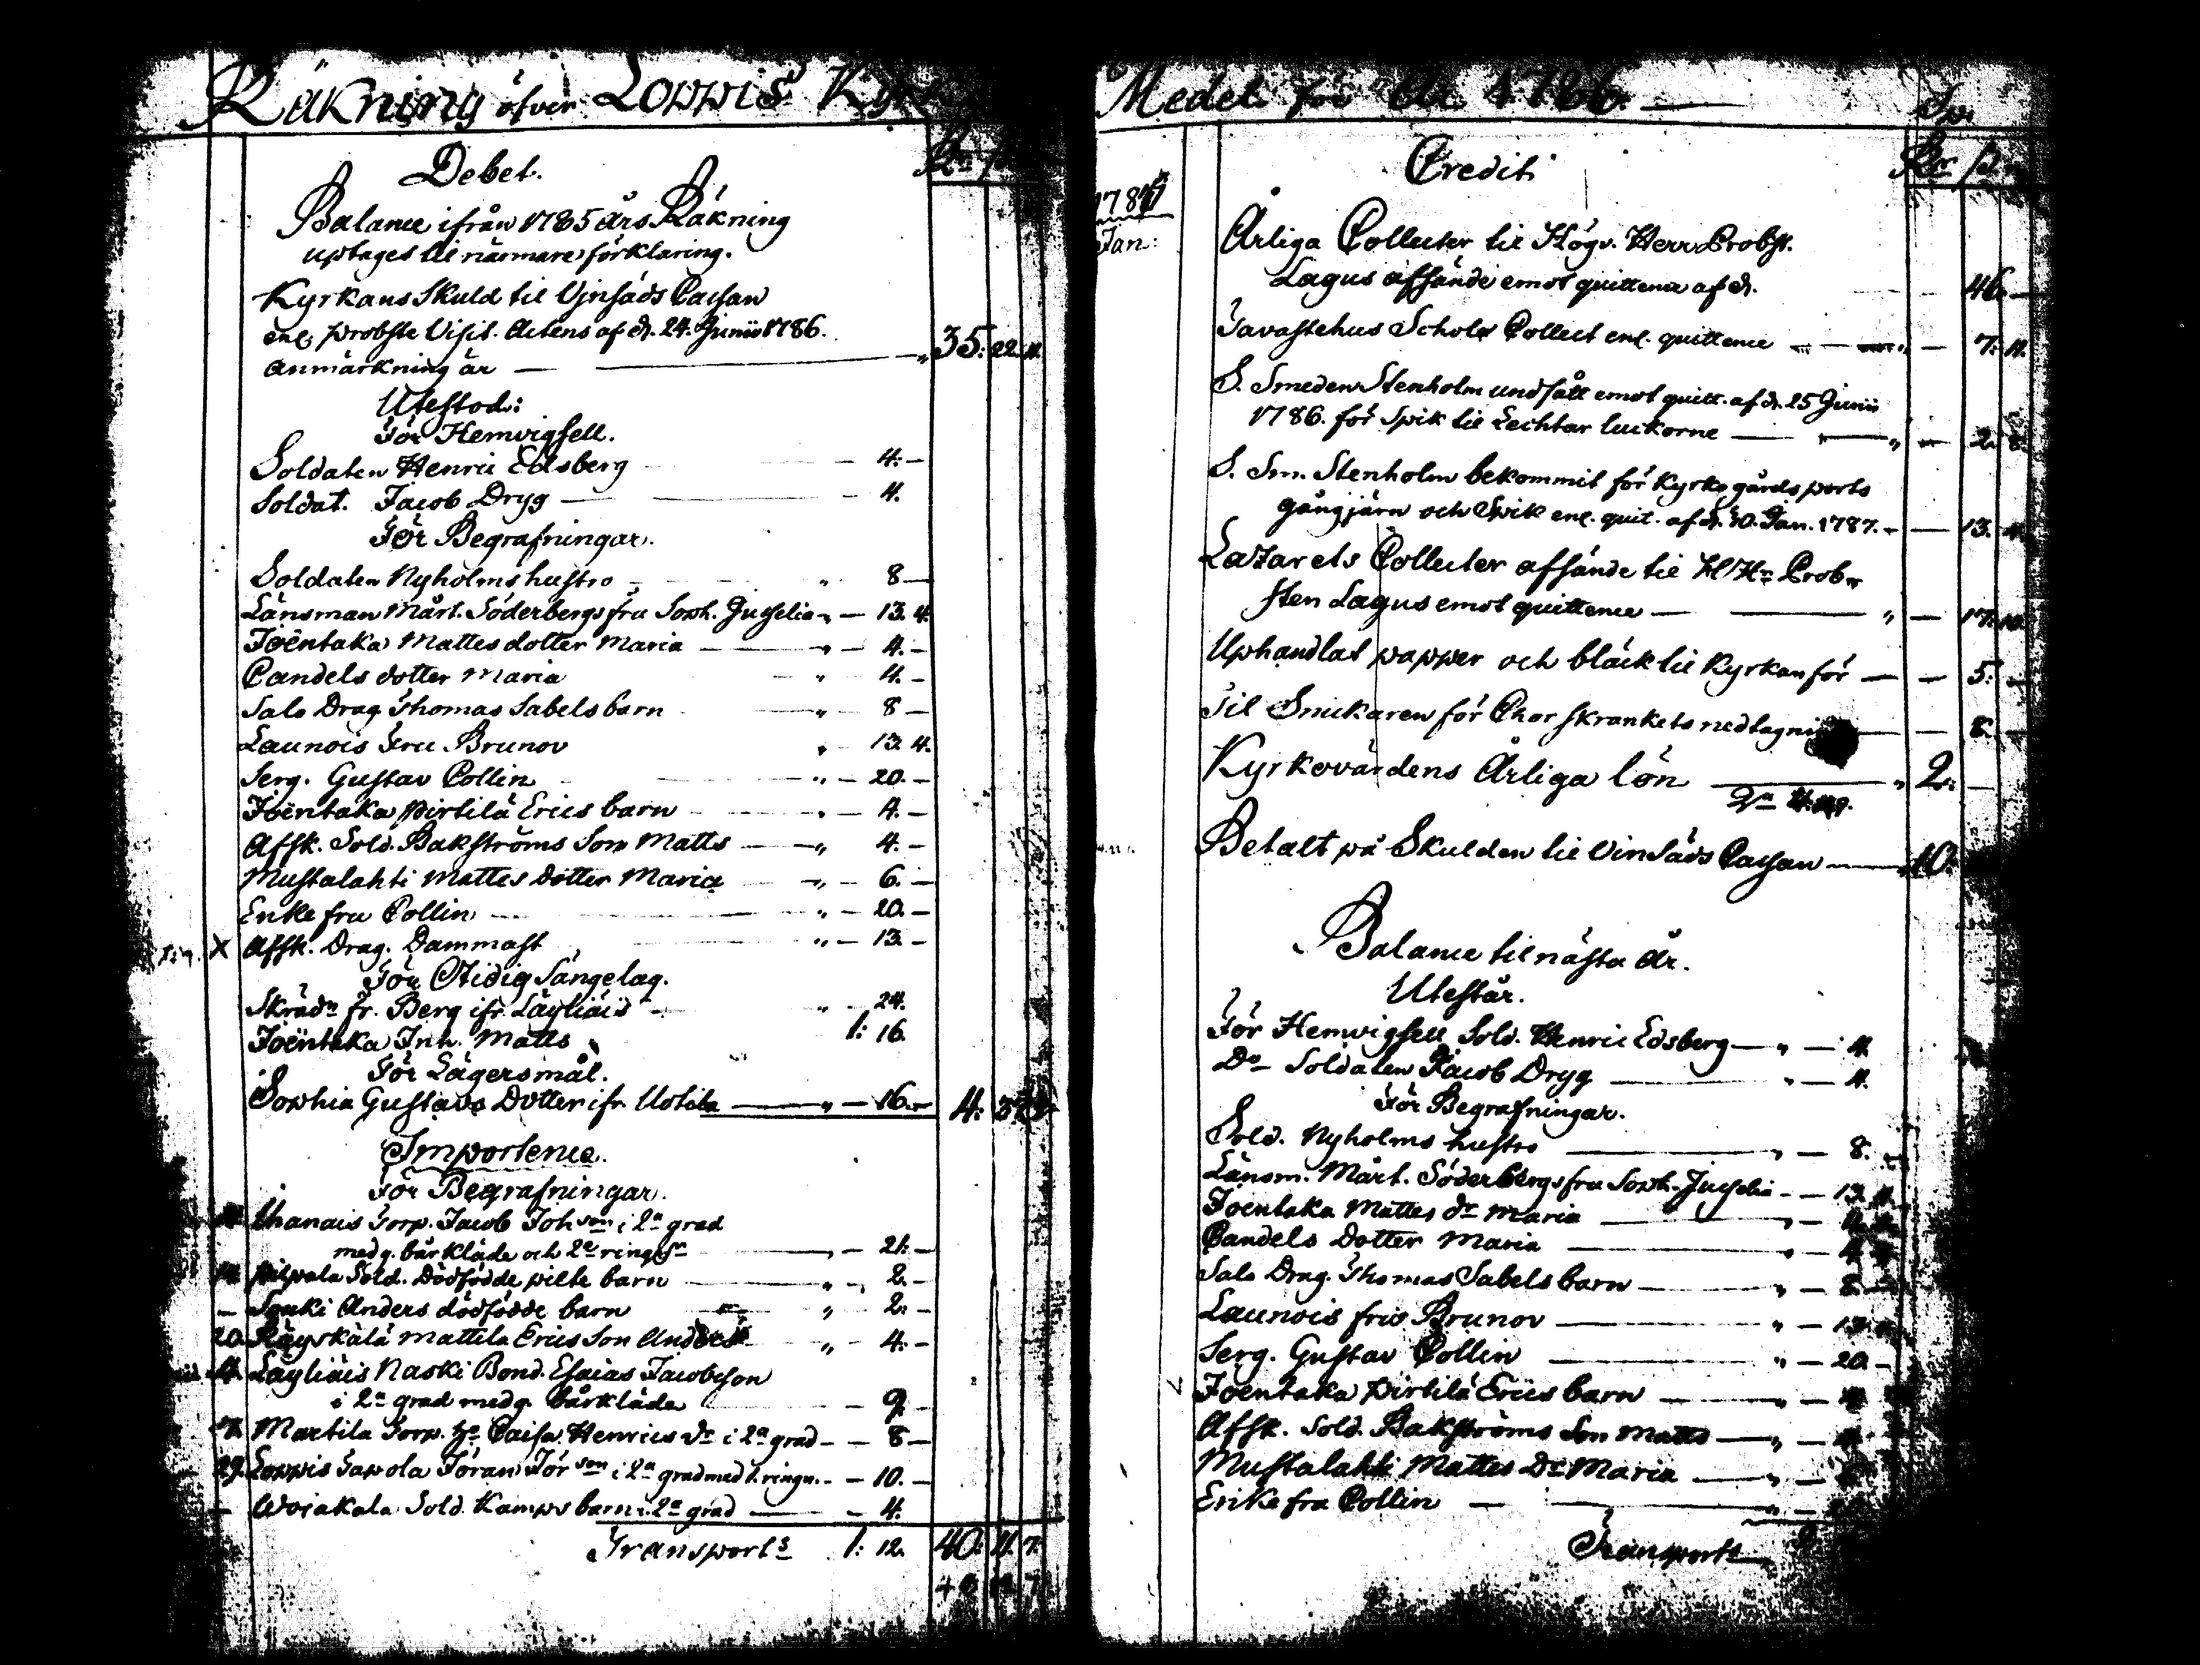 Räkning öfver Loppis Kyr
Debet.
Rd
Balance ifrån 1785 års Räkning
uptages til närmare förklaring.
Kyrkans Skuld til Vinsäds Cassan
enl. probste Visit. Actens af d. 24. Junii 1786.
anmärkning är — „ 35: 22. 11.
Utestod:
För Hemvigsell.
Soldaten Henric Edsberg — 4. —
Soldat. Jacob Dryg — 4.
För Begrafningar.
Soldaten Nyholms hustro „ 8 —
Länsman Mårt. Söderbergs fru Soph. Juselia „ — 13. 4.
Joëntaka Mattes dotter Maria — „ — 4. —
Candels dotter Maria — „ 4. —
Salo Drag. Thomas Sabels barn — „ 8 —
Launois Fru Brunov „ 13. 4.
Serg. Gustav Collin — „ — 20. —
Joëntaka Pirtilä Erics barn — „ — 4. —
Afsk. Sold. Bakströms Son Matts — „ 4. —
Mustalahti Mattes dotter Maria — „ — 6. —
Enke fru Collin — „ — 20. —
X Afsk. Drag. Dammast „ — 13. —
För Otidig Sängelag.
Skräd. fr. Berg ifr. Läyliäis — „ 24.
Joëntaka Inh. Matts 1: 16.
För Lägersmål.
Sophia Gustavs Dotter ifr. Uotila — „ — 16. — 4:
Importence.
För Begrafningar.
Uhanais Torp. Jacob Johson i 2a grad
medg. bårkläde och 2e ringnr — „ — 21. —
Pilpala Sold. dödfödde pilte barn — „ — 2. —
— Souki Anders dödfödde barn „ 2. —
20. Räyskälä Mattila Erics Son Anders „ — 4. —
Läyliäis Naski Bond. Esaias Jacobsson
i 2a grad medg. bårkläde — 9. —
7. Martila Torp. h. Caisa Henrics dr i 2a grad — — 8 —
29. Loppis Tapola Jöran Jörson i 2a grad med 1. ringn. — — 10. —
— Woiakala Sold. Kamps barn i 2a grad — 4.
Transport 1: 12. 40: 11. 7.
Medel för År 1786.
Credit
Rdr
1787
Jan:
Årliga Collecter til Högv. Herr Probst.
Lagus afsände emot quittence af d. 46. —
Tavastehus Schole Collect enl. quittence — 7: 11.
S. Smeden Stenholm undfått emot quitt. af d. 25 Junii
1786. för Spik til Lechtar luckorne — „ — 2. 8.
S. Sm. Stenholm bekommit för Kyrkogårds ports
gångjärn och Spik enl. quit. af d. 10. Jan. 1787. — — 13. 4.
Lazarets Collecter afsände til H Hr Prob-
sten Lagus emot quittence — „ — 17. 10.
Uphandlat papper och bläck til Kyrkan för — — 5: —
Til Snickaren för Chor skrankets — 8. —
Kyrkovärdens Årliga lön — „ 2. —
Betalt på Skulden til Vinsäds Cassan — 10.
Balance til nästa år.
Utestår.
För Hemvigsell Sold. Henric Edsberg — „ — 4.
Do Soldaten Jacob Dryg — „ — 4.
För Begrafningar.
Sold. Nyholms hustro — „ — 8.
Länsm. Mårt. Söderbergs fru Soph. Juselia — — 13. 4.
Joentaka Mattes dr Maria — „ — 4.
Candels Dotter Maria — „ — 4.
Salo Drag. Thomas Sabels barn — „ — 8.
Launois fru Brunov — „ — 13.
Serg. Gustav Collin — „ — 20. —
Joentaka Pirtilä Erics barn — „ — 4.
Afsk. Sold. Bakströms Son Matts — „ — 4.
Mustalahti Mattes Dr Maria — „ —
Enke fru Collin — „ —
Transport